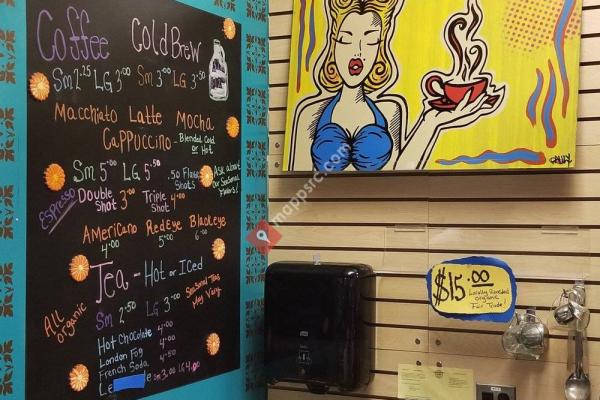 Coffee Cold Brew
Sm 2.25 LG 3.00 Sm 3.00 LG 3.50
Macchiato Latte Mocha
Cappuccino - Blended Cold or Hot
Sm 5.00 LG 5.50 .50 Flavor Shots
Ask about our Seasonal Flavors!
Espresso
Double Shot 3.00 Triple Shot 4.00
Americano RedEye BlackEye
4.00 5.00 6.00
Tea - Hot or Iced
All organic
Sm 2.50 LG 3.00
Seasonal Teas May Vary
Hot Chocolate 4.00
London Fog 4.00
French Soda 4.50
Le e Sm 3.00 LG 4.00
$15.00
Locally Roasted
Organic
Fair Trade!
mappsrc.com